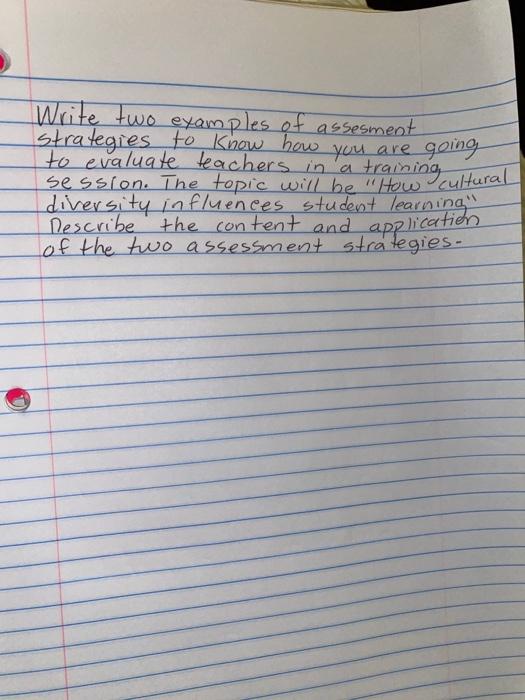 Write two examples of assesment
strategies to know how you are going
to evaluate teachers in a training
session. The topic will be "How cultural
diversity influences student learning"
Describe the content and application
of the two assessment strategies.